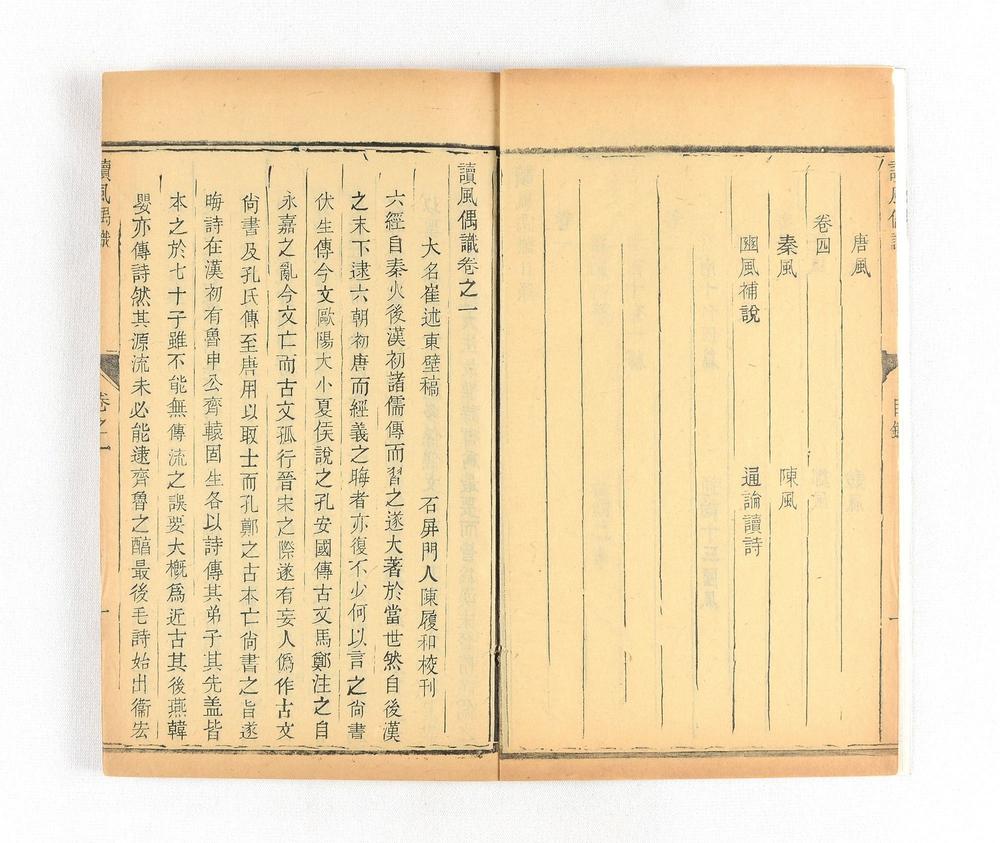 唐風
卷四
秦風　陳風
豳風補說　通論讀詩
目錄
讀風偶識卷之一
大名崔述東壁稿　石屏門人陳履和校刊
六經自秦火後漢初諸儒傳而習之遂大著於當世然自後漢
之末下逮六朝初唐而經義之晦者亦復不少何以言之尙書
伏生傳今文歐陽大小夏侯說之孔安國傳古文馬鄭注之自
永嘉之亂今文亡而古文孤行晉宋之際遂有妄人僞作古文
尙書及孔氏傳至唐用以取士而孔鄭之古本亡尙書之旨遂
晦詩在漢初有魯申公齊轅固生各以詩傳其弟子其先盖皆
本之於七十子雖不能無傳流之誤要大槪爲近古其後燕韓
嬰亦傳詩然其源流未必能逮齊魯之醇最後毛詩始出衞宏
讀風偶識
卷之一
一